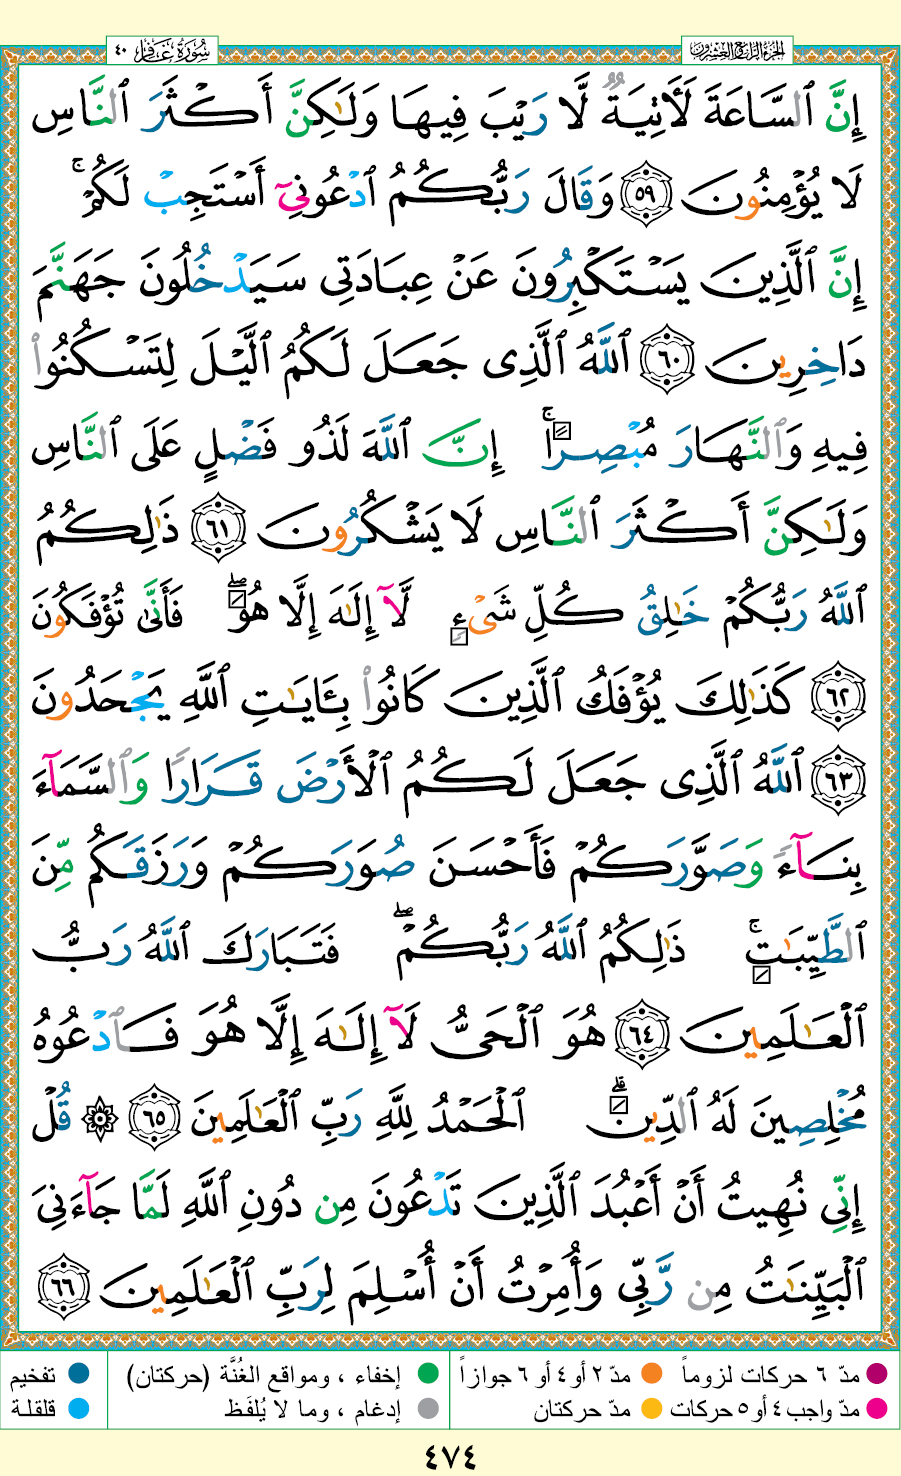 الجزء الرابع والعشرون
سُورَةُ غَافِرٍ ٤٠
إِنَّ ٱلسَّاعَةَ لَـَٔاتِيَةٌ لَّا رَيْبَ فِيهَا وَلَـٰكِنَّ أَكْثَرَ ٱلنَّاسِ
لَا يُؤْمِنُونَ ٥٩ وَقَالَ رَبُّكُمُ ٱدْعُونِىٓ أَسْتَجِبْ لَكُمْ ۚ
إِنَّ ٱلَّذِينَ يَسْتَكْبِرُونَ عَنْ عِبَادَتِى سَيَدْخُلُونَ جَهَنَّمَ
دَاخِرِينَ ٦٠ ٱللَّهُ ٱلَّذِى جَعَلَ لَكُمُ ٱلَّيْلَ لِتَسْكُنُوا۟
فِيهِ وَٱلنَّهَارَ مُبْصِرًا ۚ إِنَّ ٱللَّهَ لَذُو فَضْلٍ عَلَى ٱلنَّاسِ
وَلَـٰكِنَّ أَكْثَرَ ٱلنَّاسِ لَا يَشْكُرُونَ ٦١ ذَٰلِكُمُ
ٱللَّهُ رَبُّكُمْ خَـٰلِقُ كُلِّ شَىْءٍ لَّآ إِلَـٰهَ إِلَّا هُوَ ۖ فَأَنَّىٰ تُؤْفَكُونَ
٦٢ كَذَٰلِكَ يُؤْفَكُ ٱلَّذِينَ كَانُوا۟ بِـَٔايَـٰتِ ٱللَّهِ يَجْحَدُونَ
٦٣ ٱللَّهُ ٱلَّذِى جَعَلَ لَكُمُ ٱلْأَرْضَ قَرَارًا وَٱلسَّمَآءَ
بِنَآءً وَصَوَّرَكُمْ فَأَحْسَنَ صُوَرَكُمْ وَرَزَقَكُم مِّنَ
ٱلطَّيِّبَـٰتِ ۚ ذَٰلِكُمُ ٱللَّهُ رَبُّكُمْ ۖ فَتَبَارَكَ ٱللَّهُ رَبُّ
ٱلْعَـٰلَمِينَ ٦٤ هُوَ ٱلْحَىُّ لَآ إِلَـٰهَ إِلَّا هُوَ فَٱدْعُوهُ
مُخْلِصِينَ لَهُ ٱلدِّينَ ۗ ٱلْحَمْدُ لِلَّهِ رَبِّ ٱلْعَـٰلَمِينَ ٦٥ ۞ قُلْ
إِنِّى نُهِيتُ أَنْ أَعْبُدَ ٱلَّذِينَ تَدْعُونَ مِن دُونِ ٱللَّهِ لَمَّا جَآءَنِىَ
ٱلْبَيِّنَـٰتُ مِن رَّبِّى وَأُمِرْتُ أَنْ أُسْلِمَ لِرَبِّ ٱلْعَـٰلَمِينَ ٦٦
مدّ ٦ حركات لزوماً مدّ ٢ أو ٤ أو ٦ جوازاً إخفاء ، ومواقع الغُنَّة (حركتان) تفخيم
مدّ واجب ٤ أو ٥ حركات مدّ حركتان إدغام ، وما لا يُلفَظ قلقلة
٤٧٤